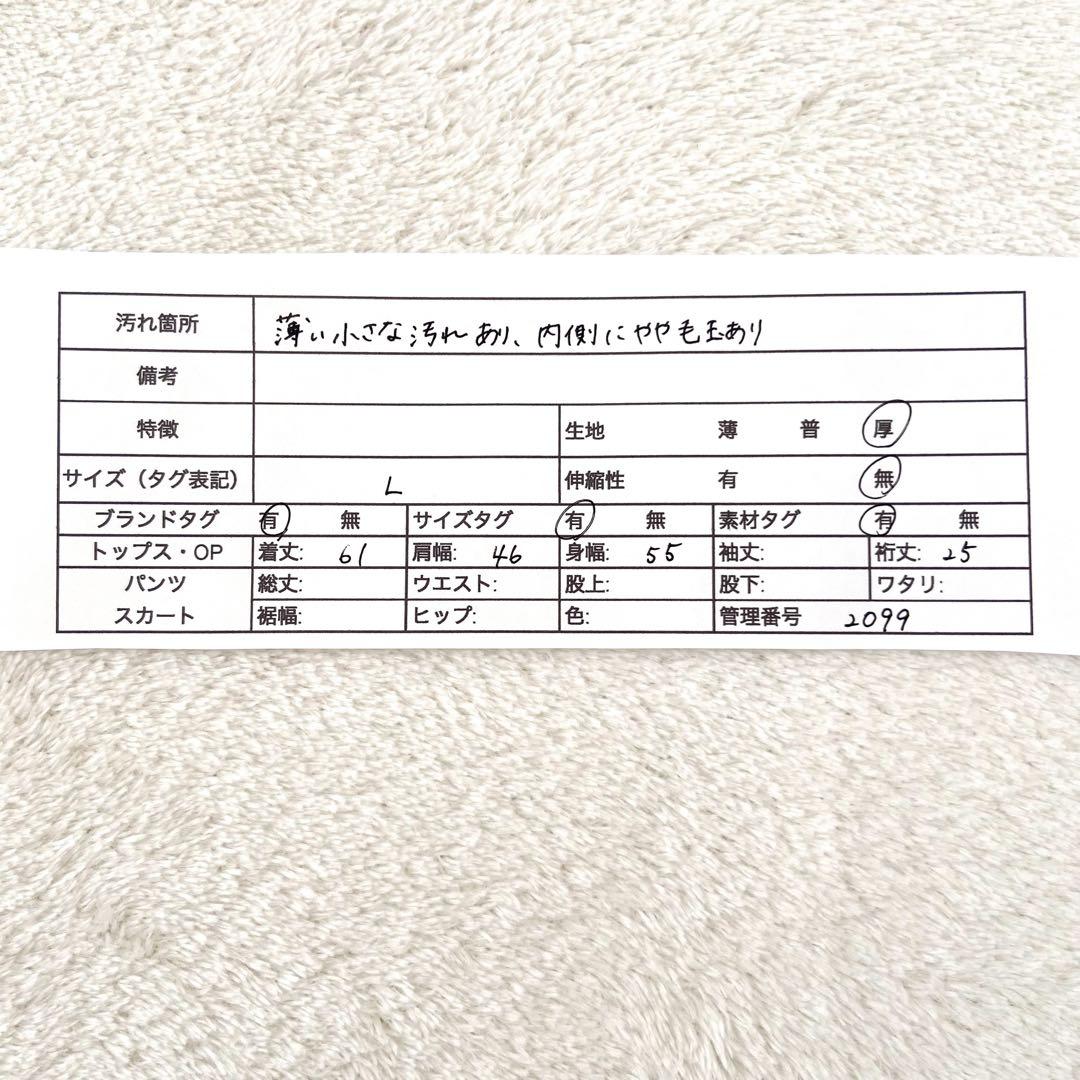 汚れ箇所 薄い小さな汚れあり、内側にやや毛玉あり
備考
特徴 生地 薄 普 厚
サイズ（タグ表記） L 伸縮性 有 無
ブランドタグ 有 無 サイズタグ 有 無 素材タグ 有 無
トップス・OP 着丈: 61 肩幅: 46 身幅: 55 袖丈: 裄丈: 25
パンツ 総丈: ウエスト: 股上: 股下: ワタリ:
スカート 裾幅: ヒップ: 色: 管理番号 2099